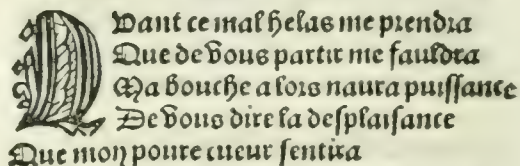 Quant ce mal helas me prendra
Que de vous partir me fauldra
Ma bouche a lors naura puissance
De vous dire la desplaisance
Que mon poure cueur sentira